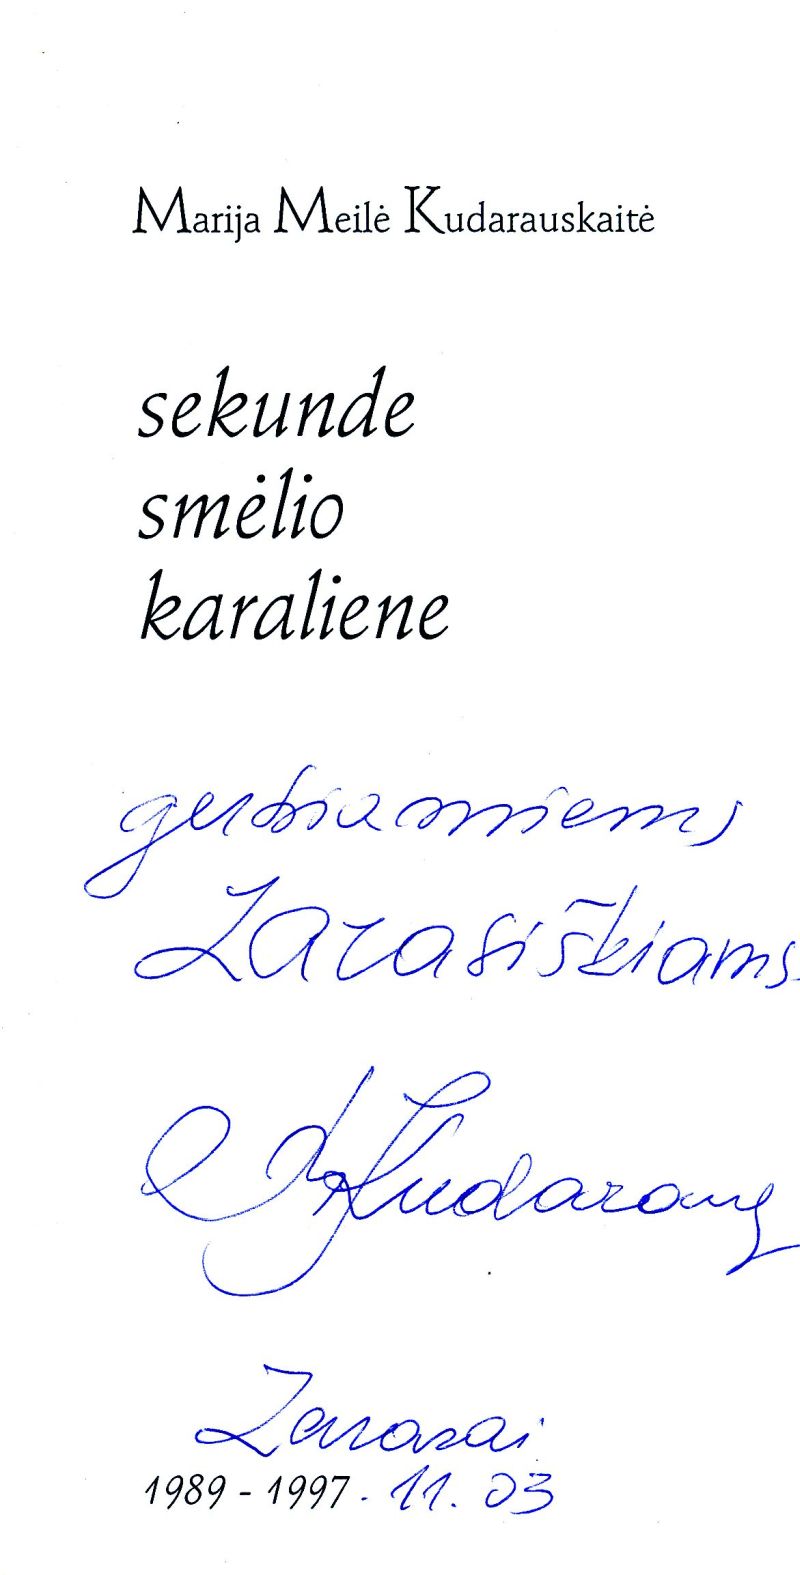 Marija Meilė Kudarauskaitė
sekunde
smėlio
karaliene
gerbiamiems
Zarasiškiams
Zarasai
1989 - 1997. 11. 03